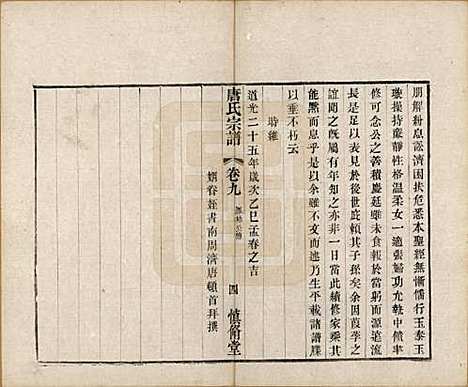 朋解紛息訟濟困扶危悉本聖經無慚懦行玉泰玉
璇操持嚴靜性格溫柔女一適張婦功允執中饋率
修可念公之善積慶延雖未食報于當躬而源遠流
長是足以表前徽於後世庇賴其子孫矣余因葭莩之
誼聞之既屬有年知之亦非一日當此續修家乘其
能默而息乎是以余雖不文而述乃生平載諸譜牒
以垂不朽云
時維
道光二十五年歲次乙巳孟春之吉
姻眷姪書南周濟唐頓首拜撰
唐氏宗譜
卷九
四
慎脩堂